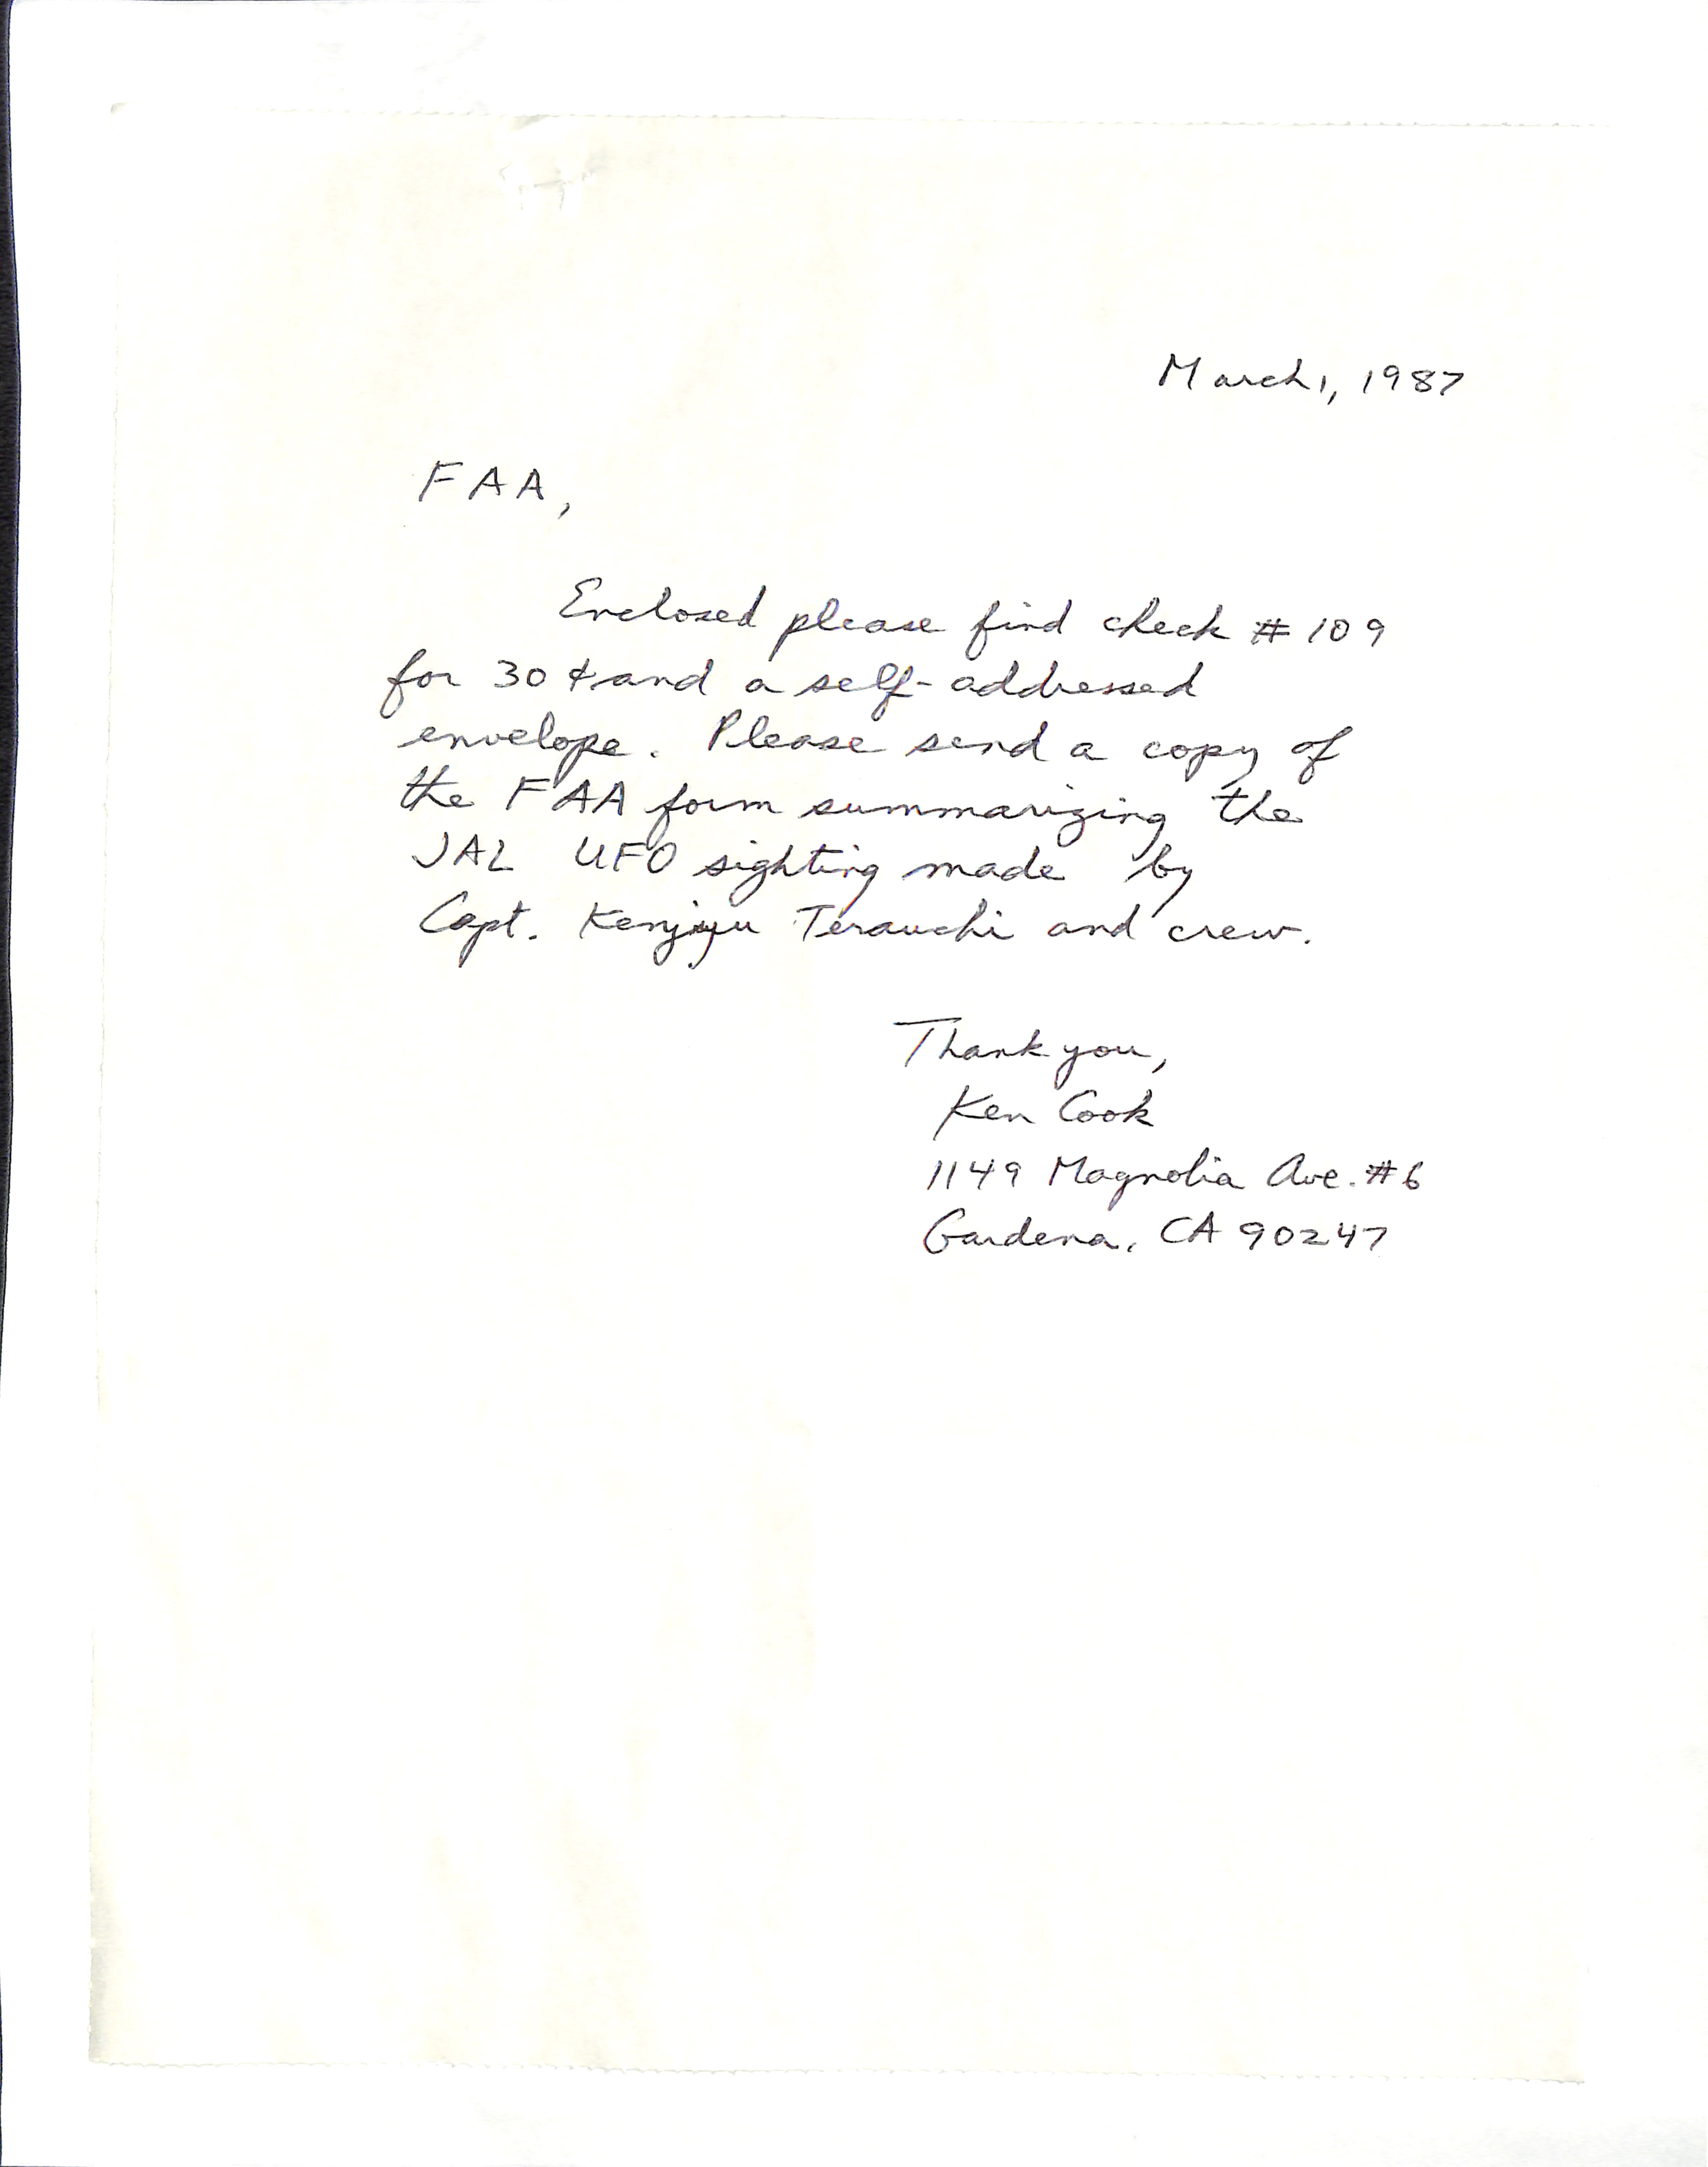 March 1, 1987
FAA,
Enclosed please find check # 109
for 30 ¢ and a self-addressed
envelope. Please send a copy of
the FAA form summarizing the
JAL UFO sighting made by
Capt. Kenjyu Terauchi and crew.
Thank you,
Ken Cook
1149 Magnolia Ave. #6
Gardena, CA 90247